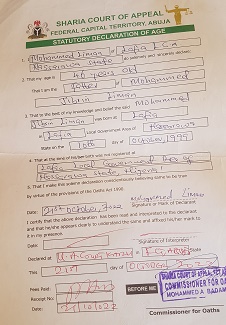 SHARIA COURT OF APPEAL
FEDERAL CAPITAL TERRITORY, ABUJA
STATUTORY DECLARATION OF AGE
1. Mohammed Liman of Lafia L G A
Nasarawa State do solemnly and sincerely declare:
2. That my age is 46 years old
That I am the father Mohammed
Jibrin Liman
3. That to the best of my knowledge and belief the said Mohammed
Jibrin Liman was born at Lafia
Lafia Local Government Area of Nasarawa
State on the 10th day of October, 1975
4. That at the time of his/her birth was not registered at
Lafia Local Government Area of
Nasarawa State Nigeria
5. That I make this solemn declaration conscientiously believing same to be true
by virtue of the provisions of the Oaths Act 1990
Mohammed Liman
Date: 21st October, 2022 Signature or Mark of Declarant
I certify that the above declaration, has been read and interpreted to the declarant
and that he/she appears clearly to understand the same and affixed his/her mark to
it in my presence.
Date:
Signature of Interpreter
Declared at State
This 21st day of October 2022
BEFORE ME
SHARIA COURT OF APPEAL
COMMISSIONER FOR OATHS
MOHAMMED A.
Fees Paid:
Receipt No:
Date: 21/10/022
Commissioner for Oaths